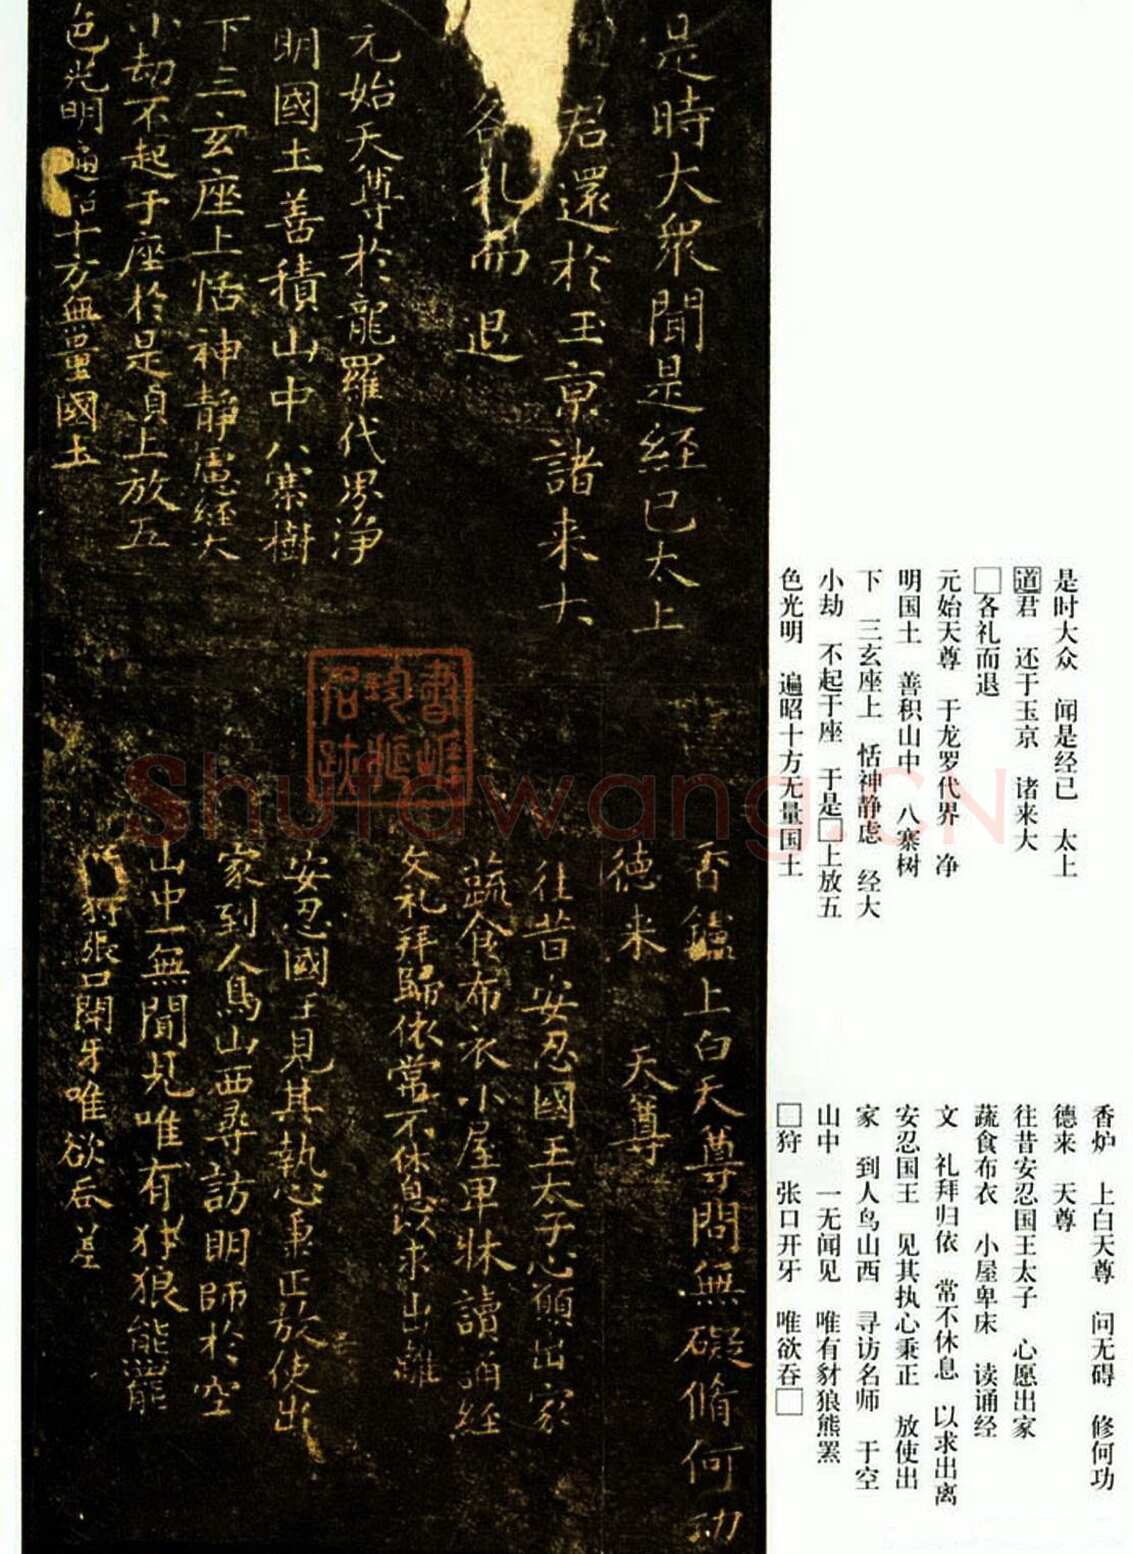 是時大衆聞是經已太上
君還於玉京諸来大
各礼而退
元始天尊於龍羅代界淨
明國土善積山中八寨樹
下三玄座上恬神静慮經大
小劫不起于座於是貞上放五
色光明遍昭十方無量國土
香鑪上白天尊問無礙脩何功
德来 天尊
往昔安忍國王太子心願出家
蔬食布衣小屋卑牀讀誦經
文礼拜歸依常不休息以求出離
安忍國王見其執心秉正放使出
家到人鳥山西尋訪明師於空
山中一無聞見唯有犲狼熊羆
狩張口開牙唯欲吞
是时大众 闻是经已 太上
道君 还于玉京 诸来大
□各礼而退
元始天尊 于龙罗代界 净
明国土 善积山中 八寨树
下 三玄座上 恬神静虑 经大
小劫 不起于座 于是□上放五
色光明 遍昭十方无量国土
香炉 上白天尊 问无碍 修何功
德来 天尊
往昔安忍国王太子 心愿出家
蔬食布衣 小屋卑床 读诵经
文 礼拜归依 常不休息 以求出离
安忍国王 见其执心秉正 放使出
家 到人鸟山西 寻访名师 于空
山中 一无闻见 唯有豺狼熊罴
□狩 张口开牙 唯欲吞□
Shufawang.CN